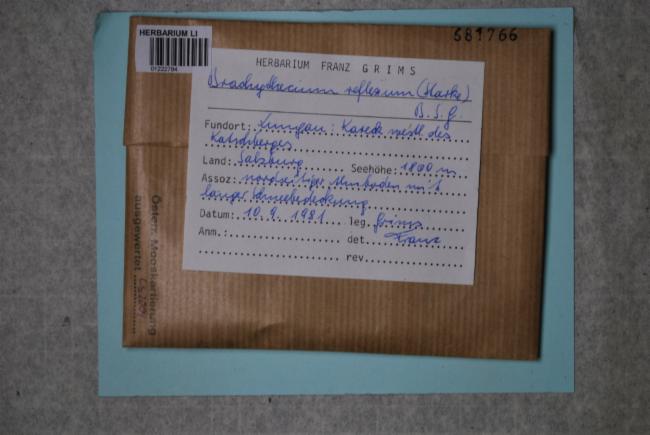 HERBARIUM LI
01222784
681766
HERBARIUM FRANZ GRIMS
Brachythecium reflexum (Starke)
B.S.G.
Fundort: Lungau: Kareck westl. des
Katschberges
Land: Salzburg Seehöhe: 1800 m
Assoz: nordseitiger Almboden mit
langer Schneebedeckung
Datum: 10.9.1981 leg. Grims
Anm.: det. Franz
rev.
Österr. Mooskartierung
ausgewertet